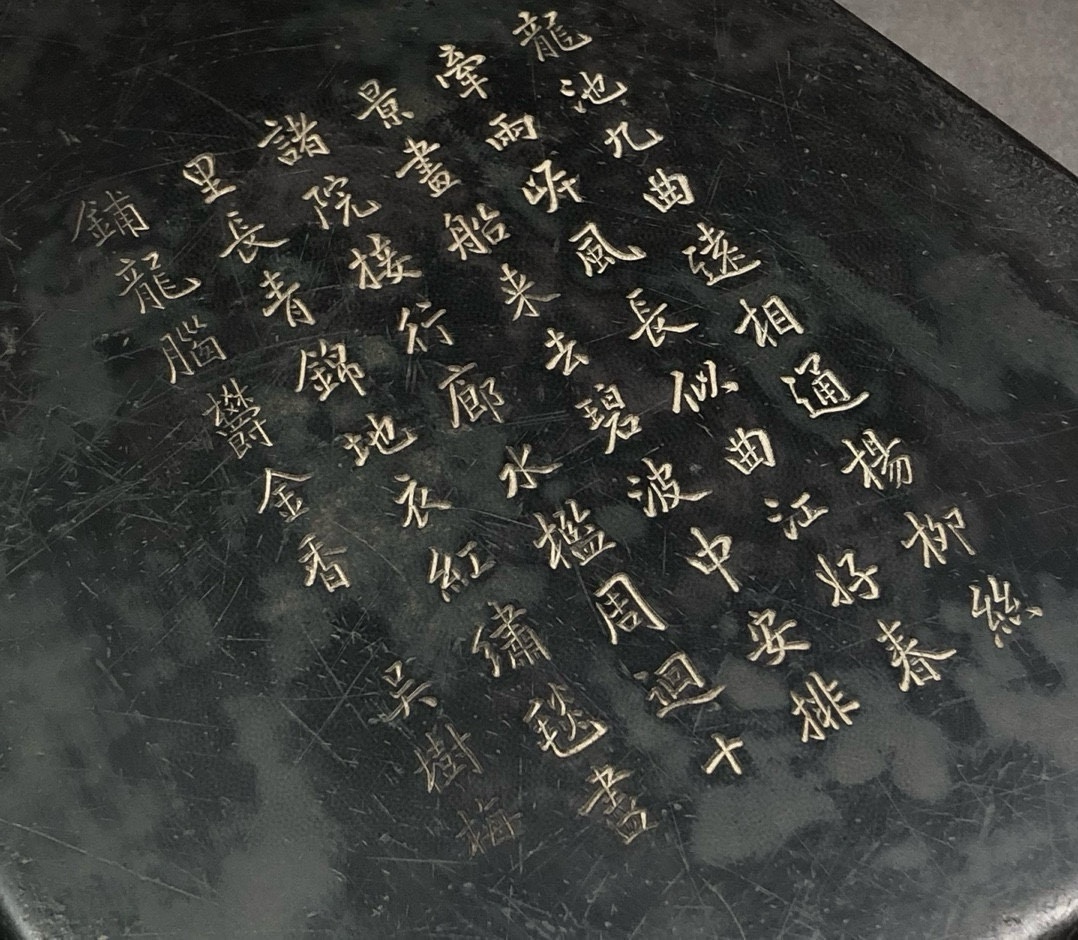 龍池九曲遠相通楊柳絲
牽兩岸風長似曲江好春
景畫船来去碧波中安排
諸院接行廊水檻周迴十
里長青錦地衣紅繡毯盡
鋪龍腦欝金香
吳樹梅